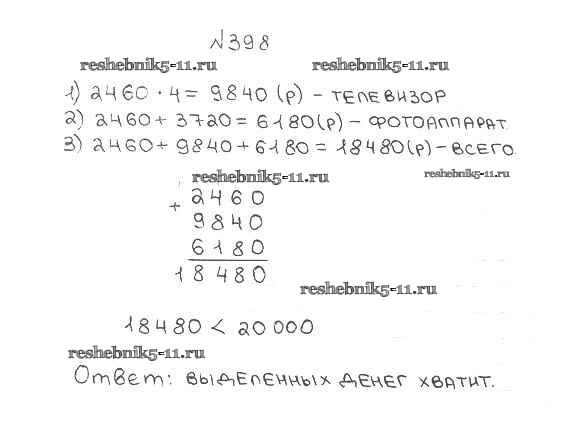 №398
reshebnik5-11.ru reshebnik5-11.ru
1) 2460 · 4 = 9840 (р) - ТЕЛЕВИЗОР
2) 2460 + 3720 = 6180 (р) - ФОТОАППАРАТ.
3) 2460 + 9840 + 6180 = 18480 (р) - ВСЕГО.
reshebnik5-11.ru reshebnik5-11.ru
+ 2460
9840
6180
18480
reshebnik5-11.ru
18480 < 20000
reshebnik5-11.ru
Ответ: ВЫДЕЛЕННЫХ ДЕНЕГ ХВАТИТ.